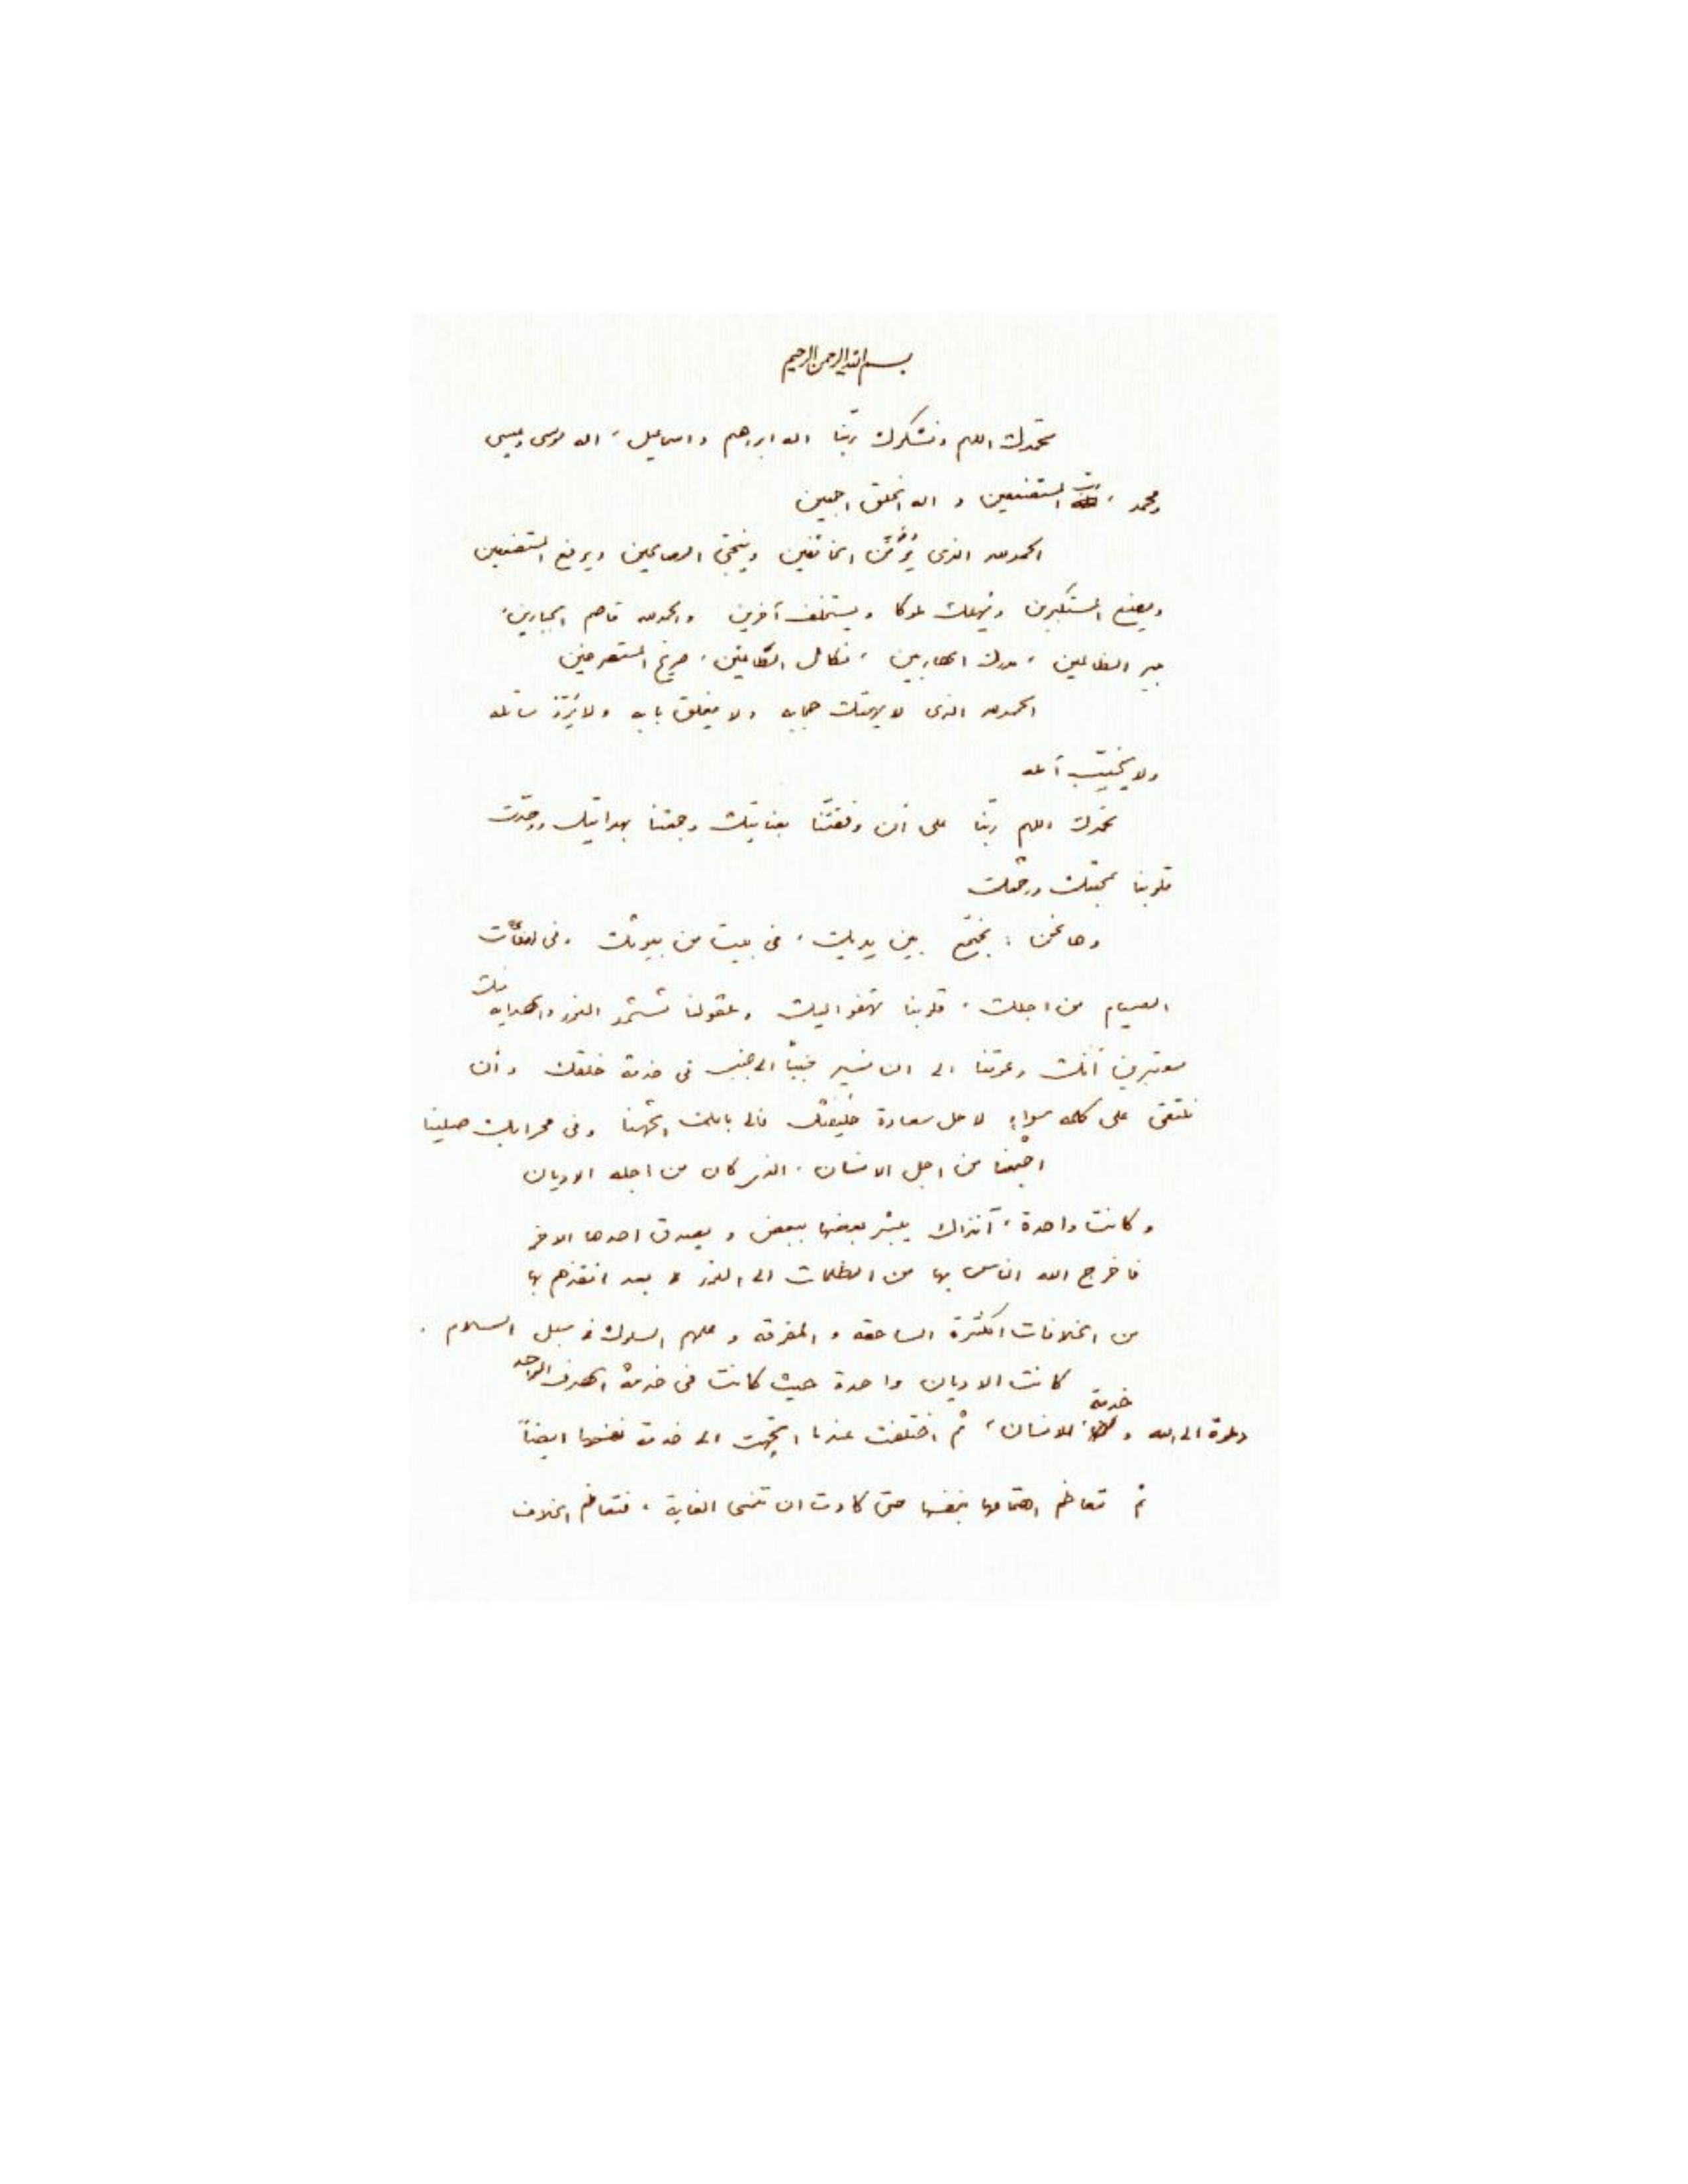 بسم الله الرحمن الرحيم
نحمدك اللهم ونشكرك ربّنا اله ابراهيم واسماعيل، اله موسى وعيسى
ومحمد، ربّ المستضعفين و اله الخلق اجمعين
الحمدلله الذى يُؤمّن الخائفين وينجّى الصالحين ويرفع المستضعفين
ويضع المستكبرين ويُهلك ملوكا ويستخلف آخرين والحمدلله قاصم الجبارين،
مبير الظالمين، مدرك الهاربين، نكال الظالمين، صريخ المستصرخين
الحمدلله الذى لا يهتك حجابه ولا يغلق بابه ولا يُردّ سائله
ولا يُخيّب آمله
نحمدك اللهم ربّنا على أن وفقتّنا بعنايتك وجمعتنا بهدايتك ووحّدت
قلوبنا بمحبّتك ورحمتك
وها نحن: نجتمع بين يديك، فى بيت من بيوتك، وفى لحظات
الصيام من اجلك، قلوبنا تهفو اليك وعقولنا تستمّد النور والهدايه منك
معتبرين أنّك دعوتنا الى ان نسير جنباً الى جنب فى خدمة خلقك وأن
نلتقى على كلمه سواء لاجل سعادة خليقتك فالى بابك اتجّهنا وفى محرابك صلّينا
اجتمعنا من اجل الانسان، الذى كان من اجله الاديان
وكانت واحدة، آنذاك يبشر بعضها ببعض و يصدق احدها الاخر
فاخرج الله الناس بها من الظلمات الى النور بعد انقذهم بها
من الخلافات الكثيرة الساحقه و المفرقه و علّمهم السلوك فى سبل السلام.
كانت الاديان واحدة حيث كانت فى خدمة الهدف الواحد
دعوة الى الله و خدمة للانسان، ثم اختلفت عندما اتّجهت الى خدمة نفسها ايضاً
ثم تعاظم اهتمامها بنفسها حتى كادت ان تنسى الغاية، فتعاظم الخلاف